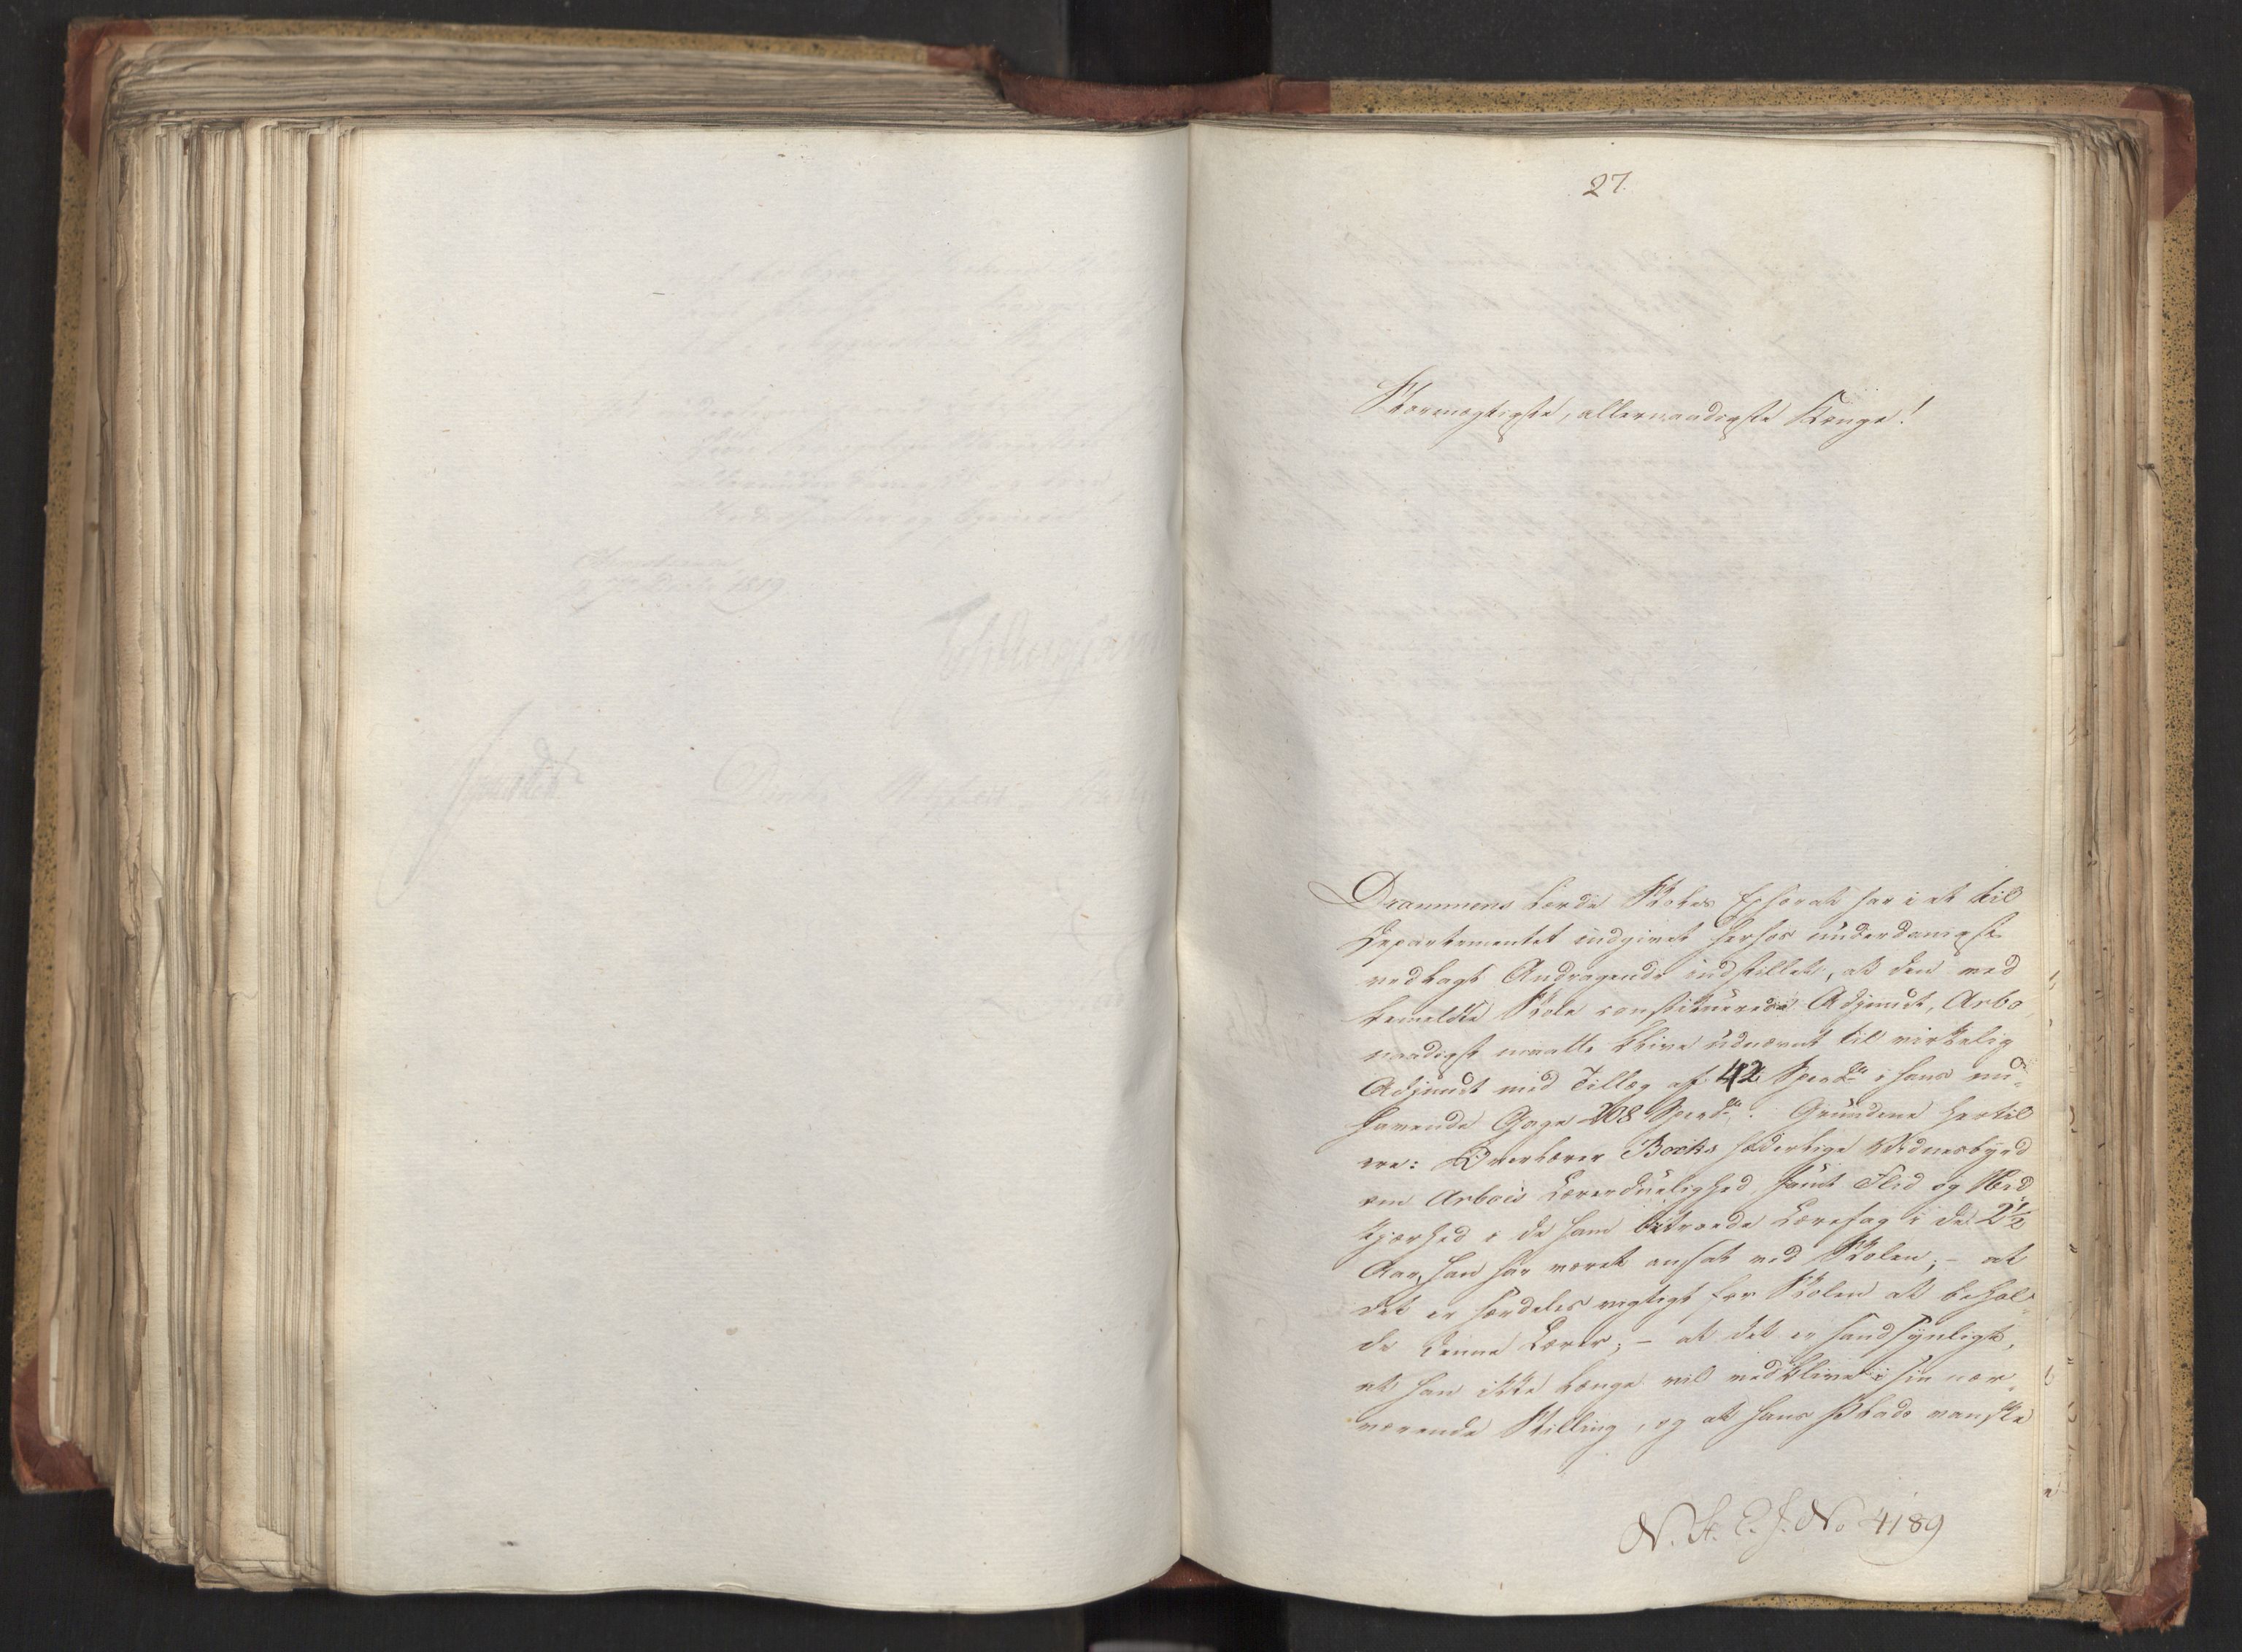 27.
Stormægtigste, allernaadigste Konge!
Drammens lærde Skoles Ephorat har i et til
Departementet indgivet herhos underdanigst
vedlagt Andragende indstillet, at den ved
bemeldte Skole constituerede Adjunct, Arbo
naadigst maatte blive udnævnt til virkelig
Adjunct med Tillæg af 42 Specd i hans nu-
havende Gage 208 Specd. Grundene hertil
ere: Overlærer Bocks hæderlige Vidnesbyrd
om Arbois Lærerduelighed, samt Flid og Nid
kjærhed i de ham betroede Lærefag i de 2½
Aar, han har været ansat ved Skolen; - at
det er særdeles vigtigt for Skolen at behol-
de denne Lærer; - at det er sandsynligt,
at han ikke længe vil vedblive i sin nær-
værende Stilling, og at hans Plads vanske
N. 4189